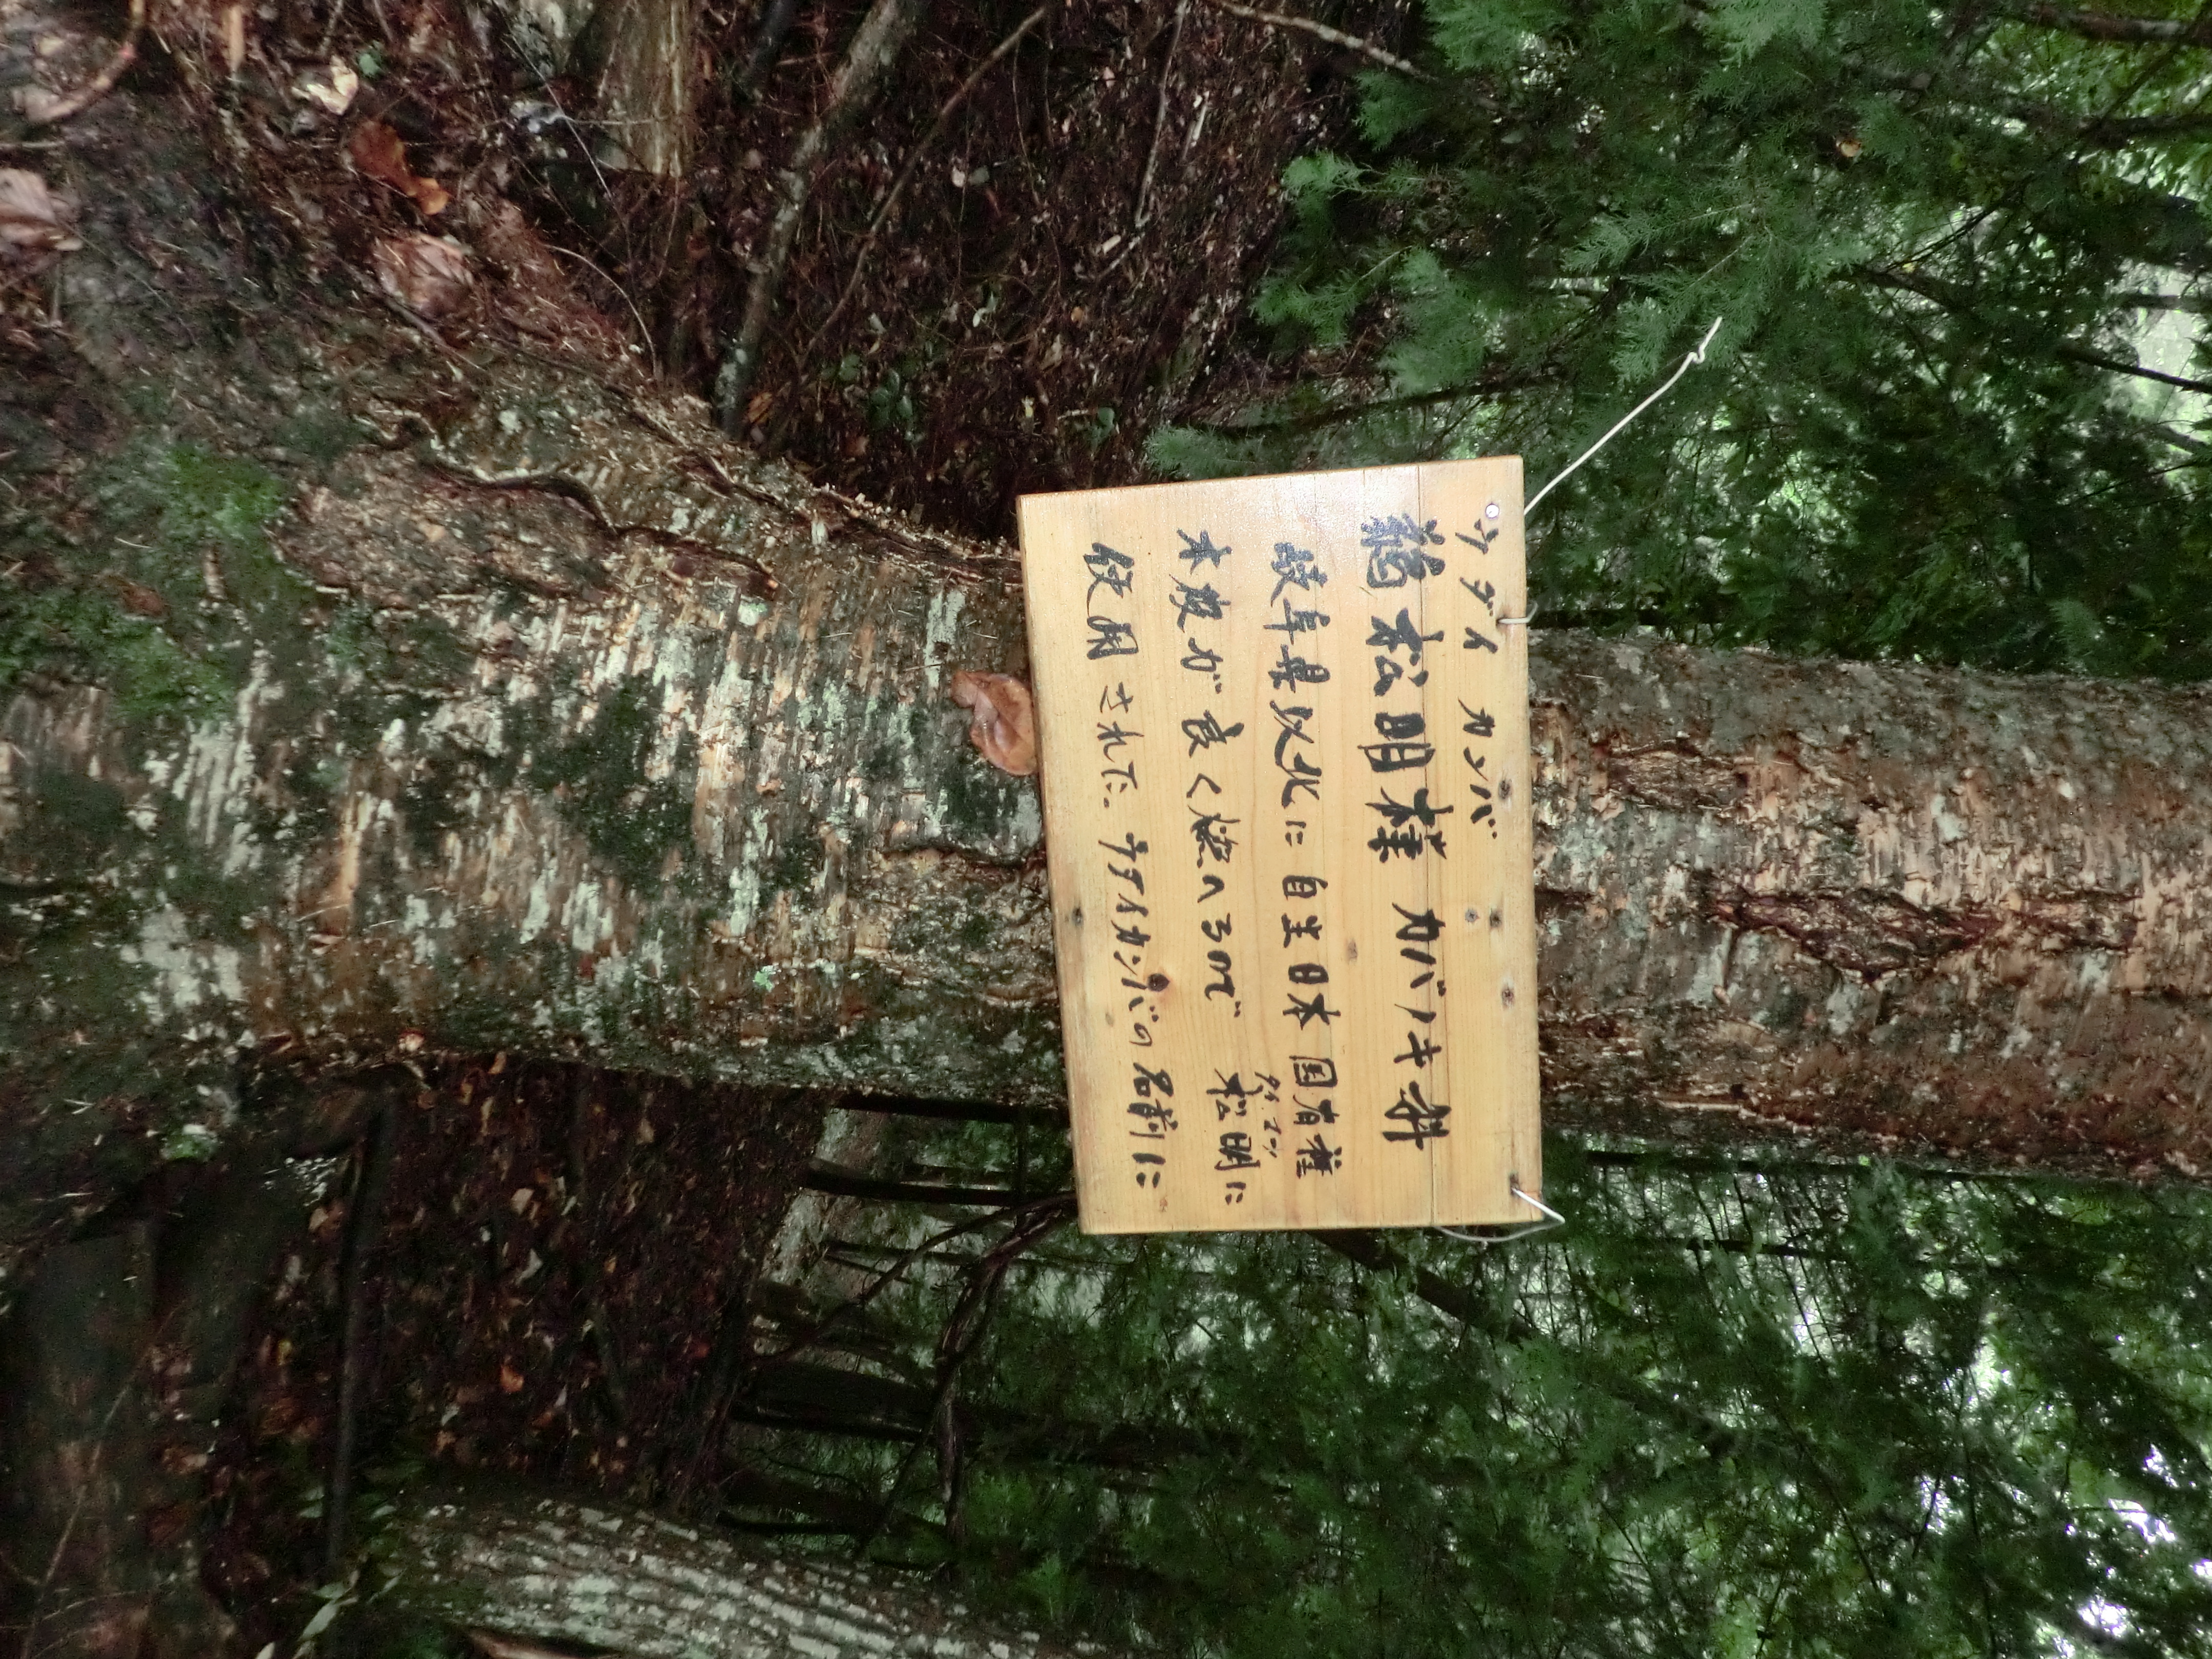 ウダイ カンバ
鵜松明樺 カバノキ科
岐阜県以北に自生日本国有種
タイマツ
木皮が良く燃へるので 松明に
使用されて。ウダイカンバの名前に